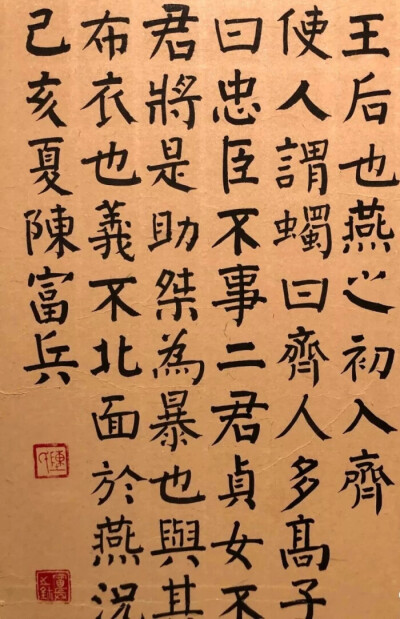 王后也燕之初入齊
使人謂蠋曰齊人多高子
曰忠臣不事二君貞女不
君將是助桀為暴也與其
布衣也義不北面於燕況
己亥夏陳富兵